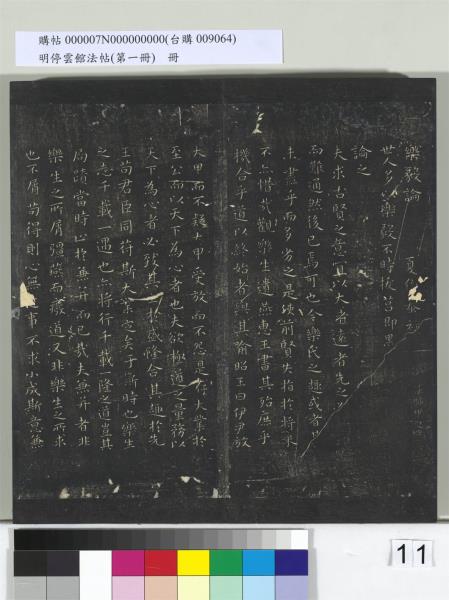 購帖 000007N000000000(台購 009064)
明停雲館法帖(第一冊) 冊
樂毅論
夏侯泰初
世人多以樂毅不時拔莒即墨
論之
夫求古賢之意宜以大者遠者先之
而難通然後已焉可也今樂氏之趣或者
未盡乎而多劣之是使前賢失指於將來
不亦惜哉觀樂生遺燕惠王書其殆庶乎
機合乎道以終始者與其喻昭王曰伊尹放
大甲而不疑大甲受放而不怨是存大業於
至公而以天下為心者也夫欲極道之量務以
天下為心者必致其於盛隆合其趣於先
王苟君臣同符斯大業定矣于斯時也樂生
之志千載一遇也亦將行千載一隆之道豈其
局蹟當時止於兼并而已哉夫兼并者非
樂生之所屑彊燕而廢道又非樂生之所求
也不屑苟得則心無事不求小成斯意兼
11